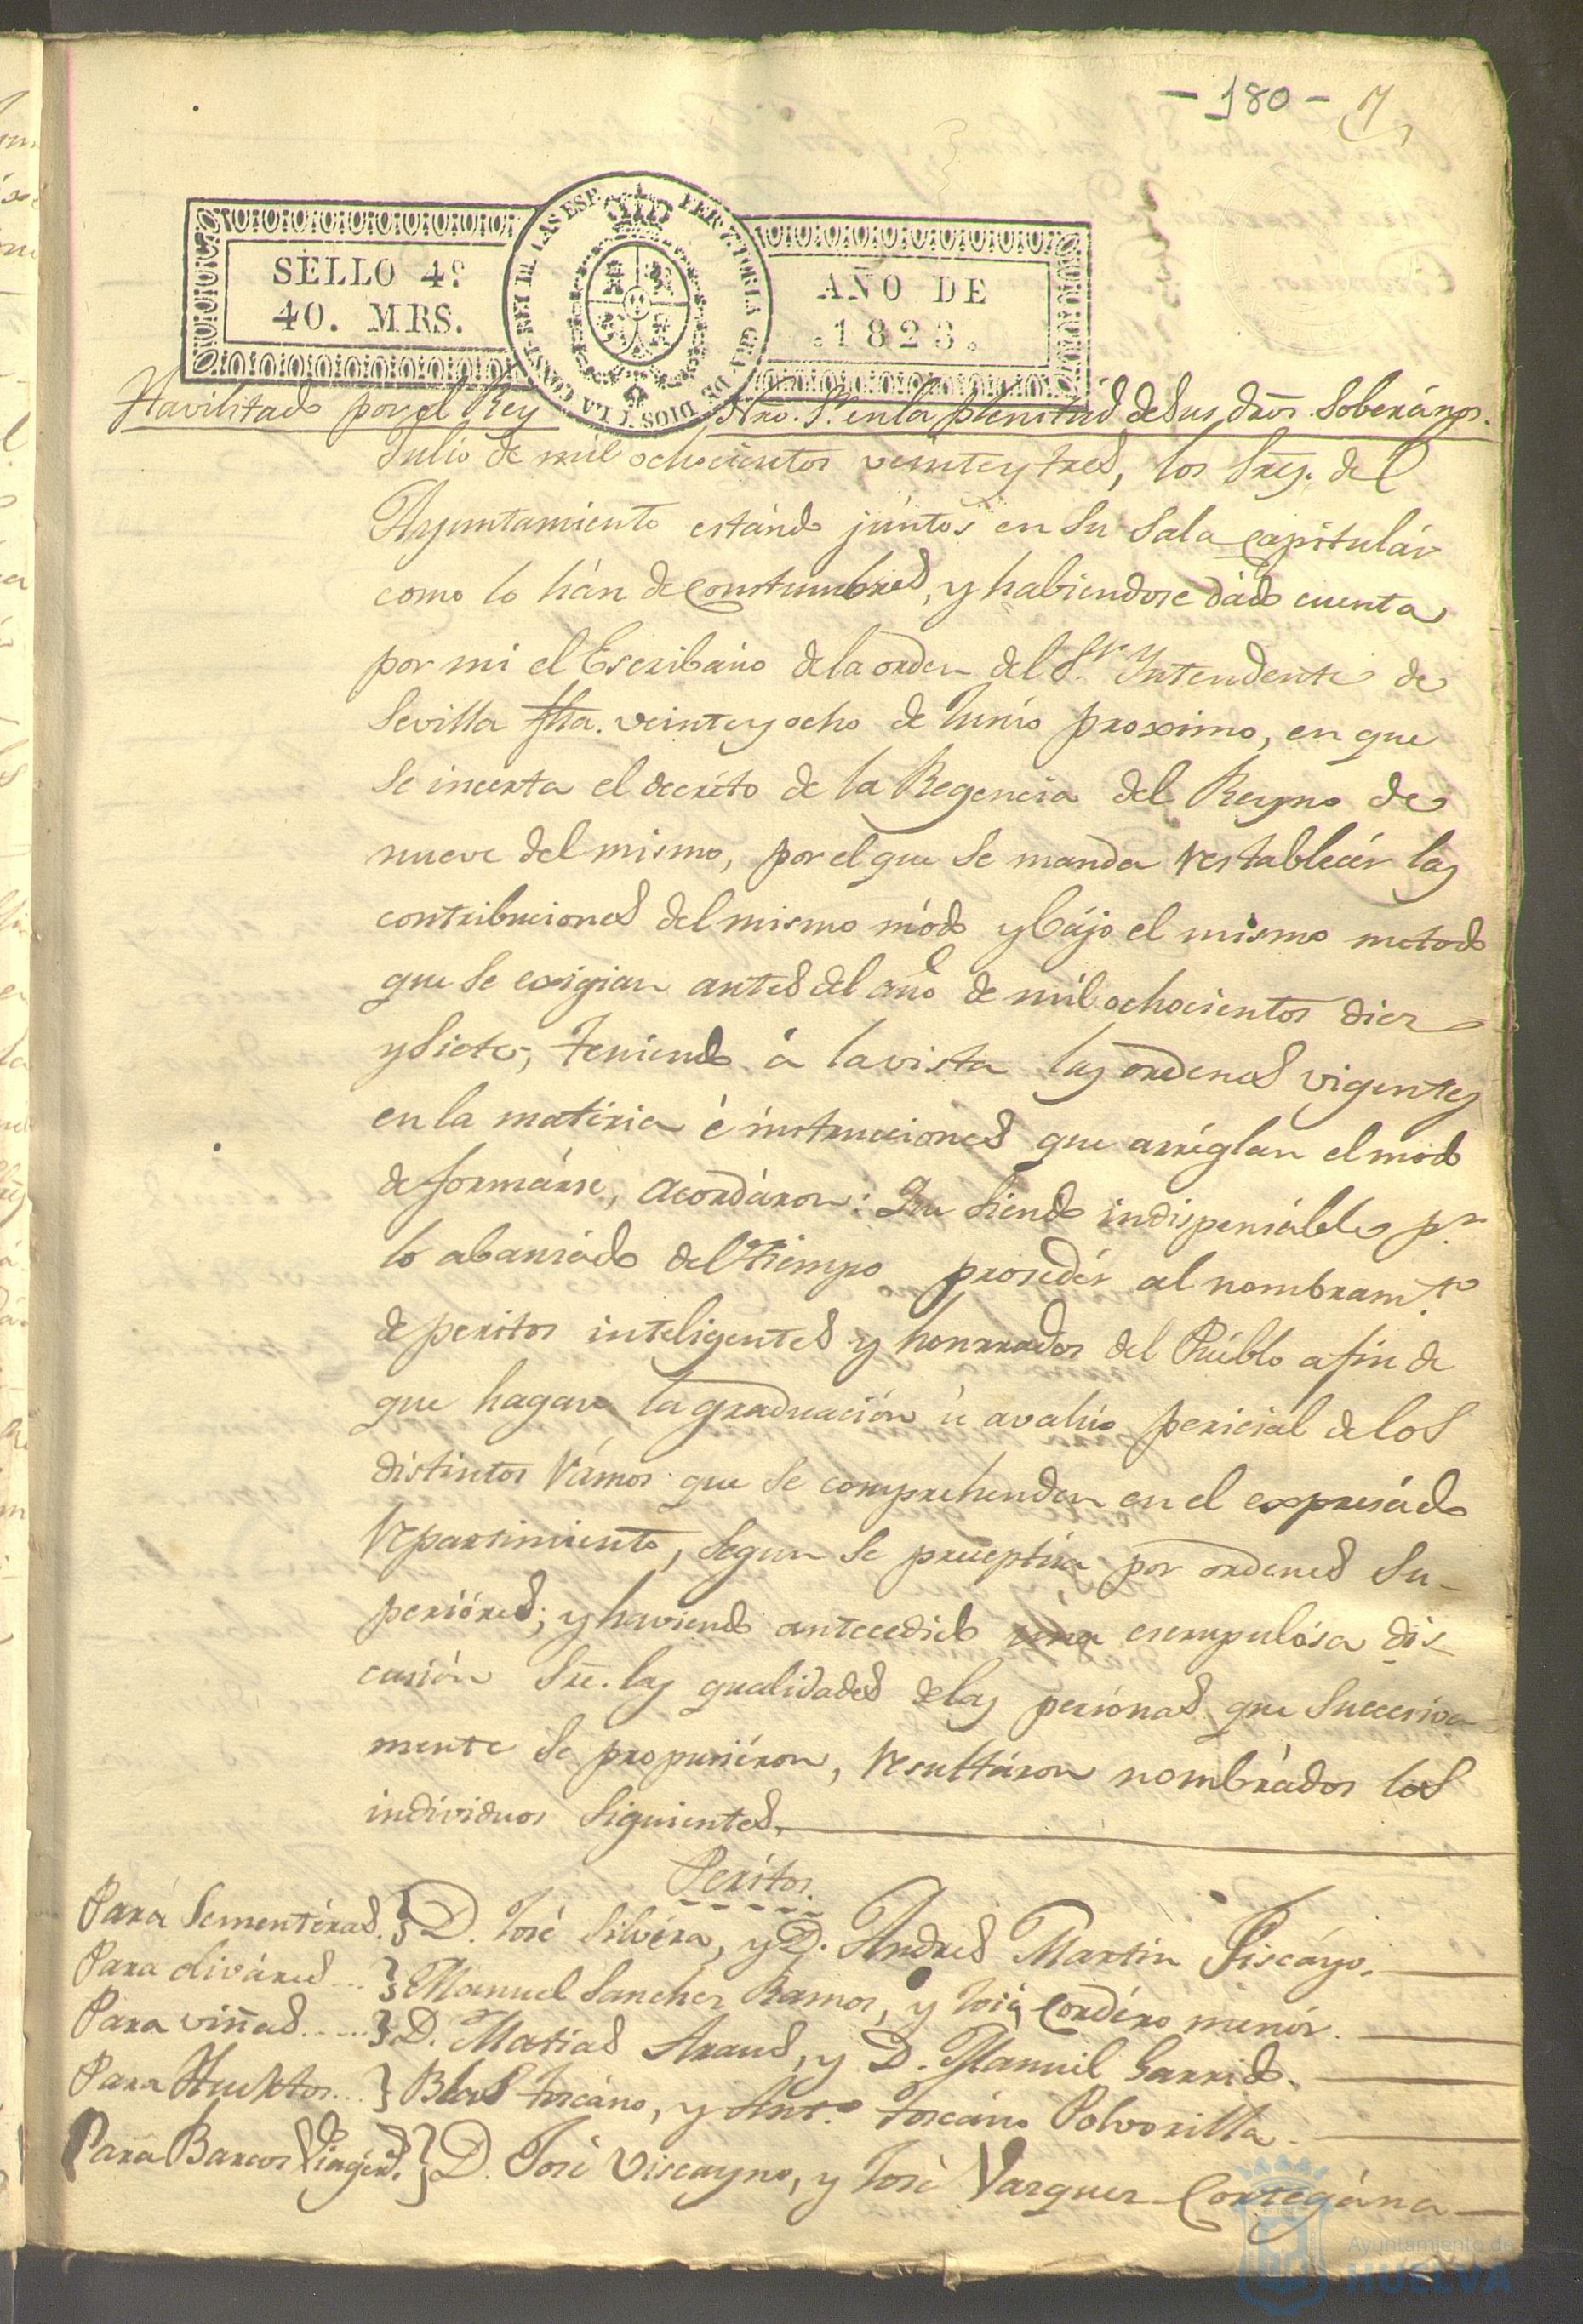 - 180 - 7
SELLO 4º
40. MRS.
FER. 7. POR LA GRA. DE DIOS Y LA CONST. REY DE LAS ESP.
AÑO DE
.1823.
Havilitado por el Rey Nro. Sr. en la plenitud de sus dros. Soberános.
Julio de mil ochocientos veinte y tres, los Sres. del
Ayuntamiento estándo júntos en su Sala capitulár
como lo hán de Constumbres, y habiendose dádo cuenta
por mi el Escribano de la orden del Sr. Yntendente de
Sevilla fha. veinte y ocho de Junio proximo, en que
se incerta el decréto de la Regencia del Reyno de
nueve del mismo, por el que se manda restablecér las
contribuciones del mismo módo y bájo el mismo metodo
que se exigian antes del año de mil ochocientos diez
y Siete, teniendo á la vista las ordenes vigentes
en la matéria é instrucciones que arréglan el modo
de formárse, acordáron: Que siendo indispensáble pr.
lo abansádo del tiempo prosedér al nombramto.
de peritos inteligentes y honrrados del Puéblo a fin de
que hagan la graduación ú avalúo pericial de los
distintos rámos que se comprehenden en el expresádo
repartimiento, segun se preceptúa por ordenes Su-
perióres; y haviendo antecedido una escrupulósa dis-
cusión sre. las qualidades de las persónas que succesiva-
mente se propusiéron, resultáron nombrádos los
individuos siguientes.
Peritos.
Para Sementéras. } D. José Silvéra, y D. Andres Martin Piscáyo.
Para oliváres ... } Manuel Sanchez Ramos, y José Cordéro menór.
Para viñas ..... } D. Matías Araus, y D. Manuél Garrido.
Para Huertos ... } Blas toscáno, y Anto. toscáno Polvorilla.
Para Barcos Viagéros. } D. José Viscayno, y José Vazquez Cortegána
Ayuntamiento de
HUELVA